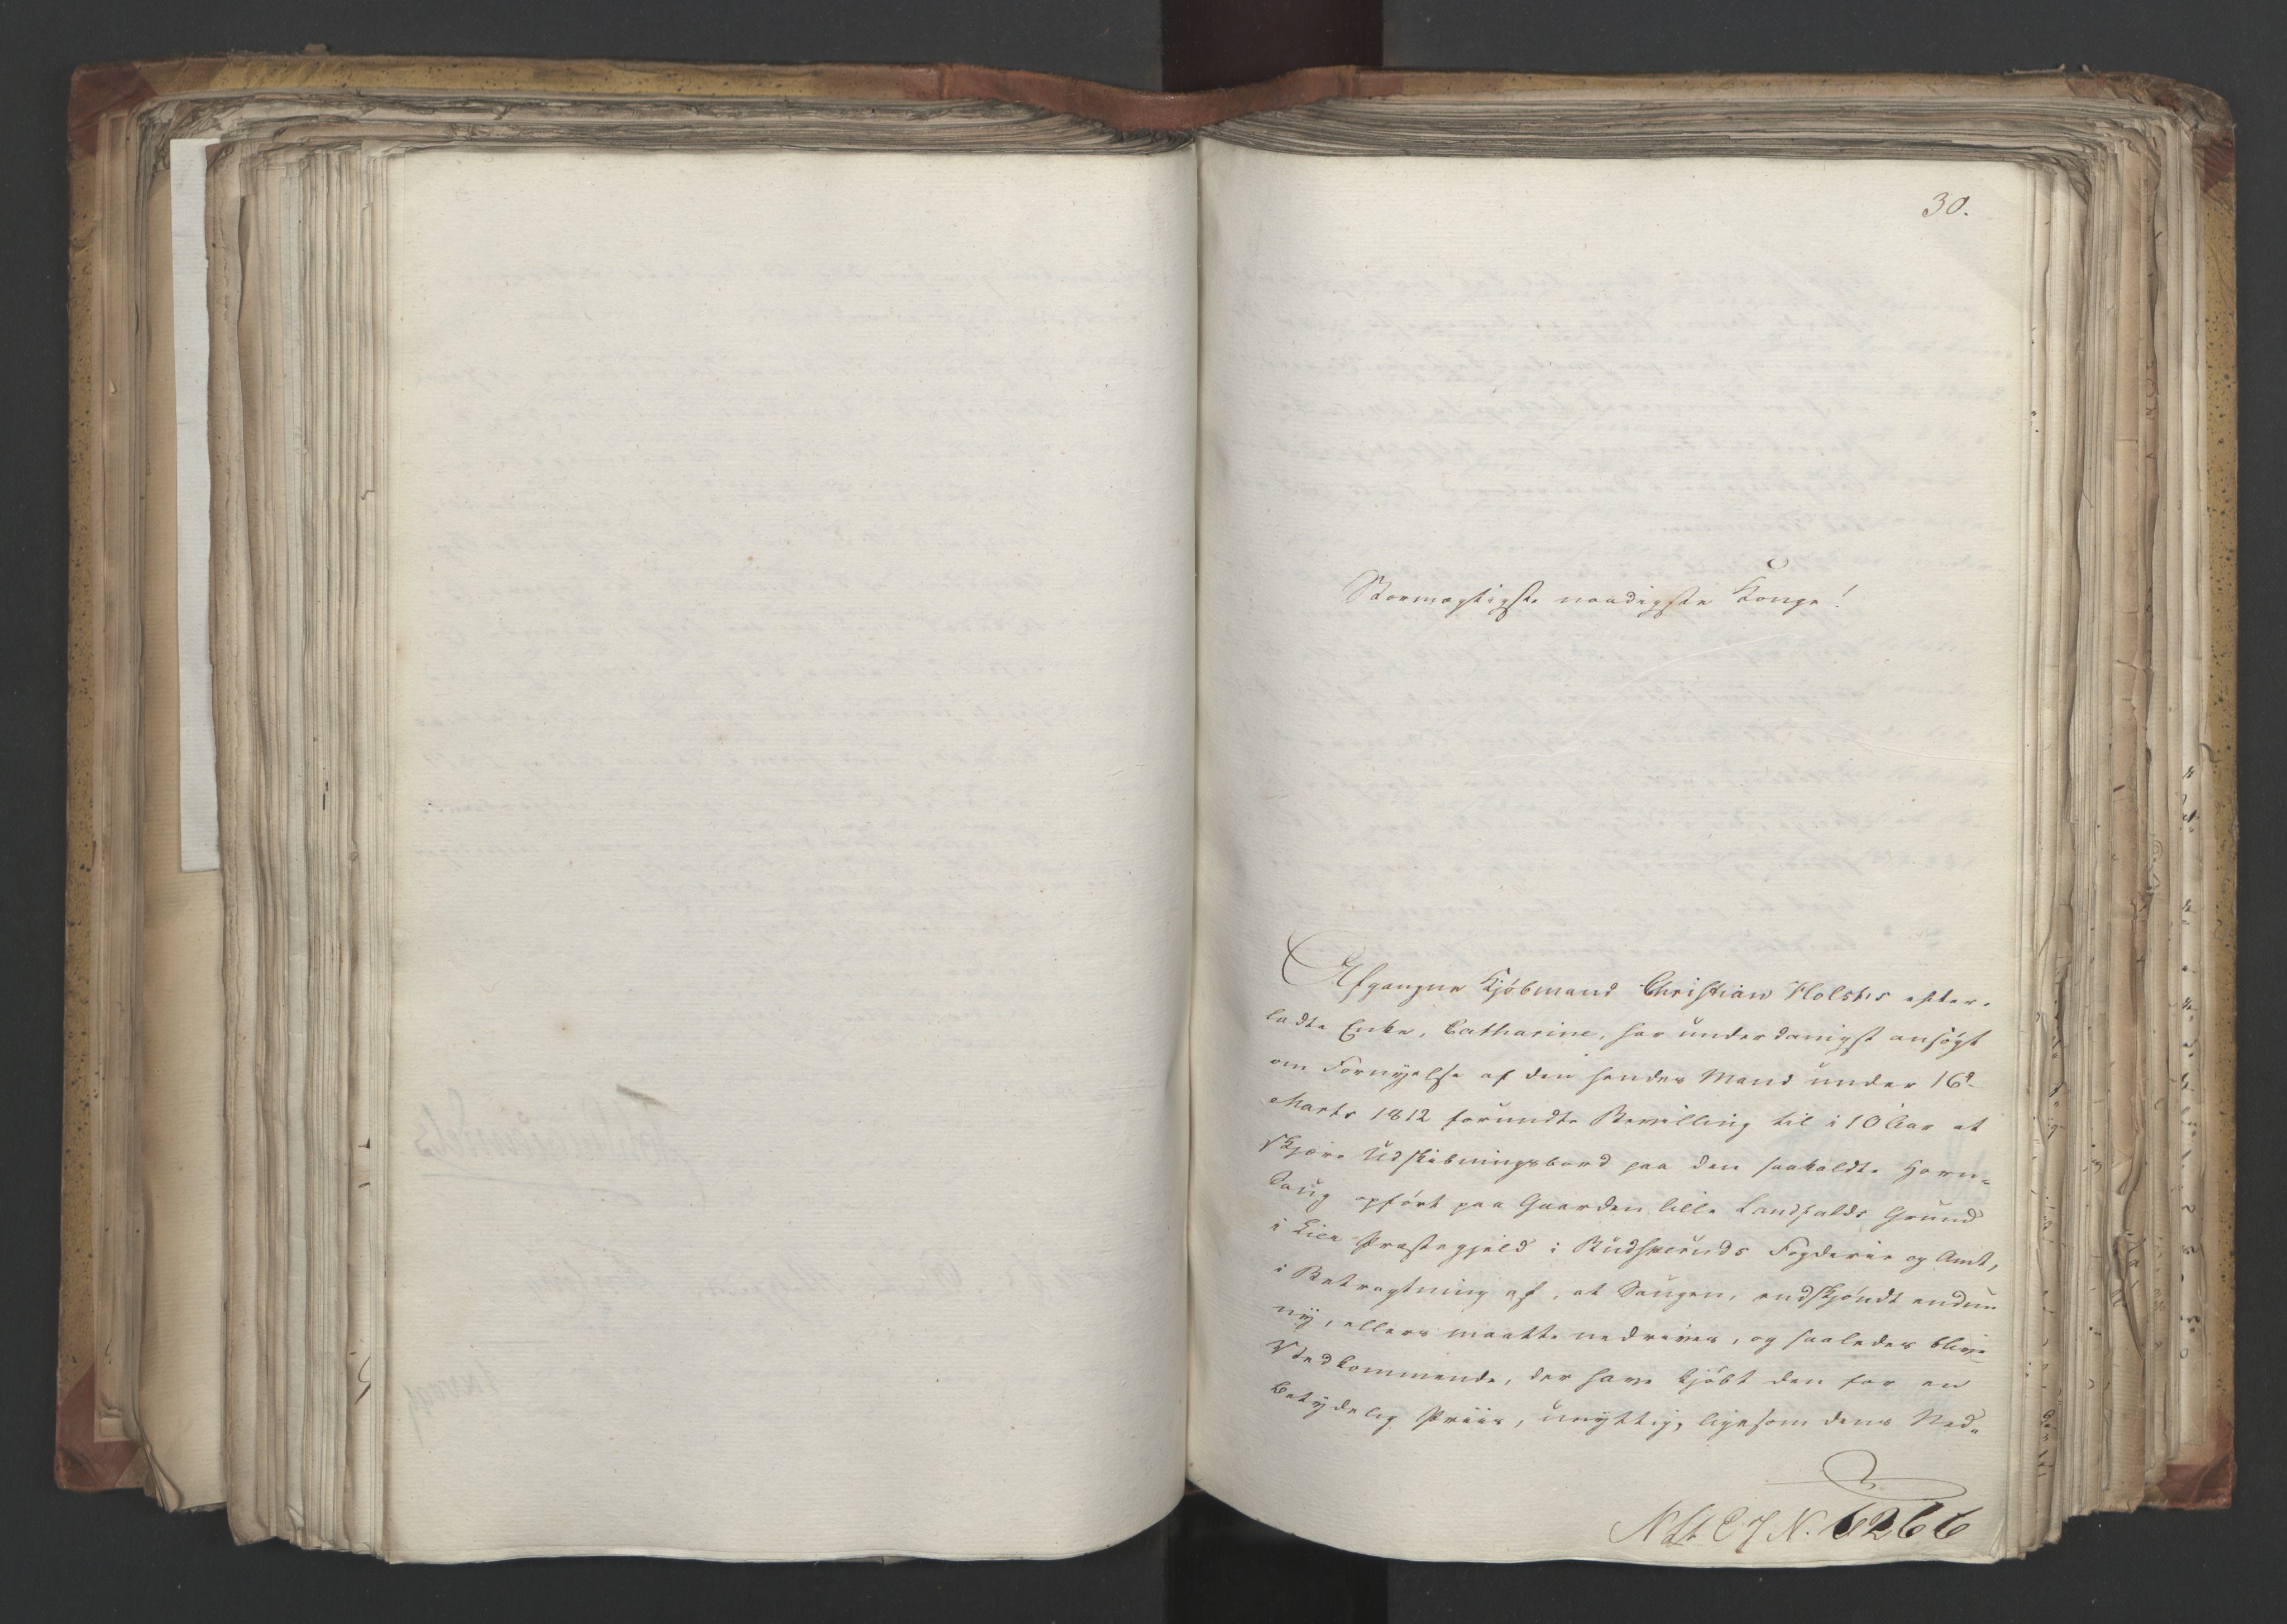 30.
Stormægtigste naadigste Konge!
Afgangne Kjöbmand Christian Holsts efter-
ladte Enke, Catharine, har underdanigst ansögt
om Fornyelse af den hendes Mand under 16de
Marts 1812 forundte Bevilling til i 10 Aar at
skjære Udskibningsbord paa den saakaldte Horn-
Saug opfört paa Gaarden lille Landfalds Grund
i Lier Præstegjeld i Budskeruds Fogderie og Amt,
i Betragtning af, at Saugen, endskjöndt endnu
ny, ellers maatte nedrives, og saaledes blive
Vedkommende, der have kjöbt den for en
betydelig Priis, unyttig, ligesom dens Ned-
N. 6266